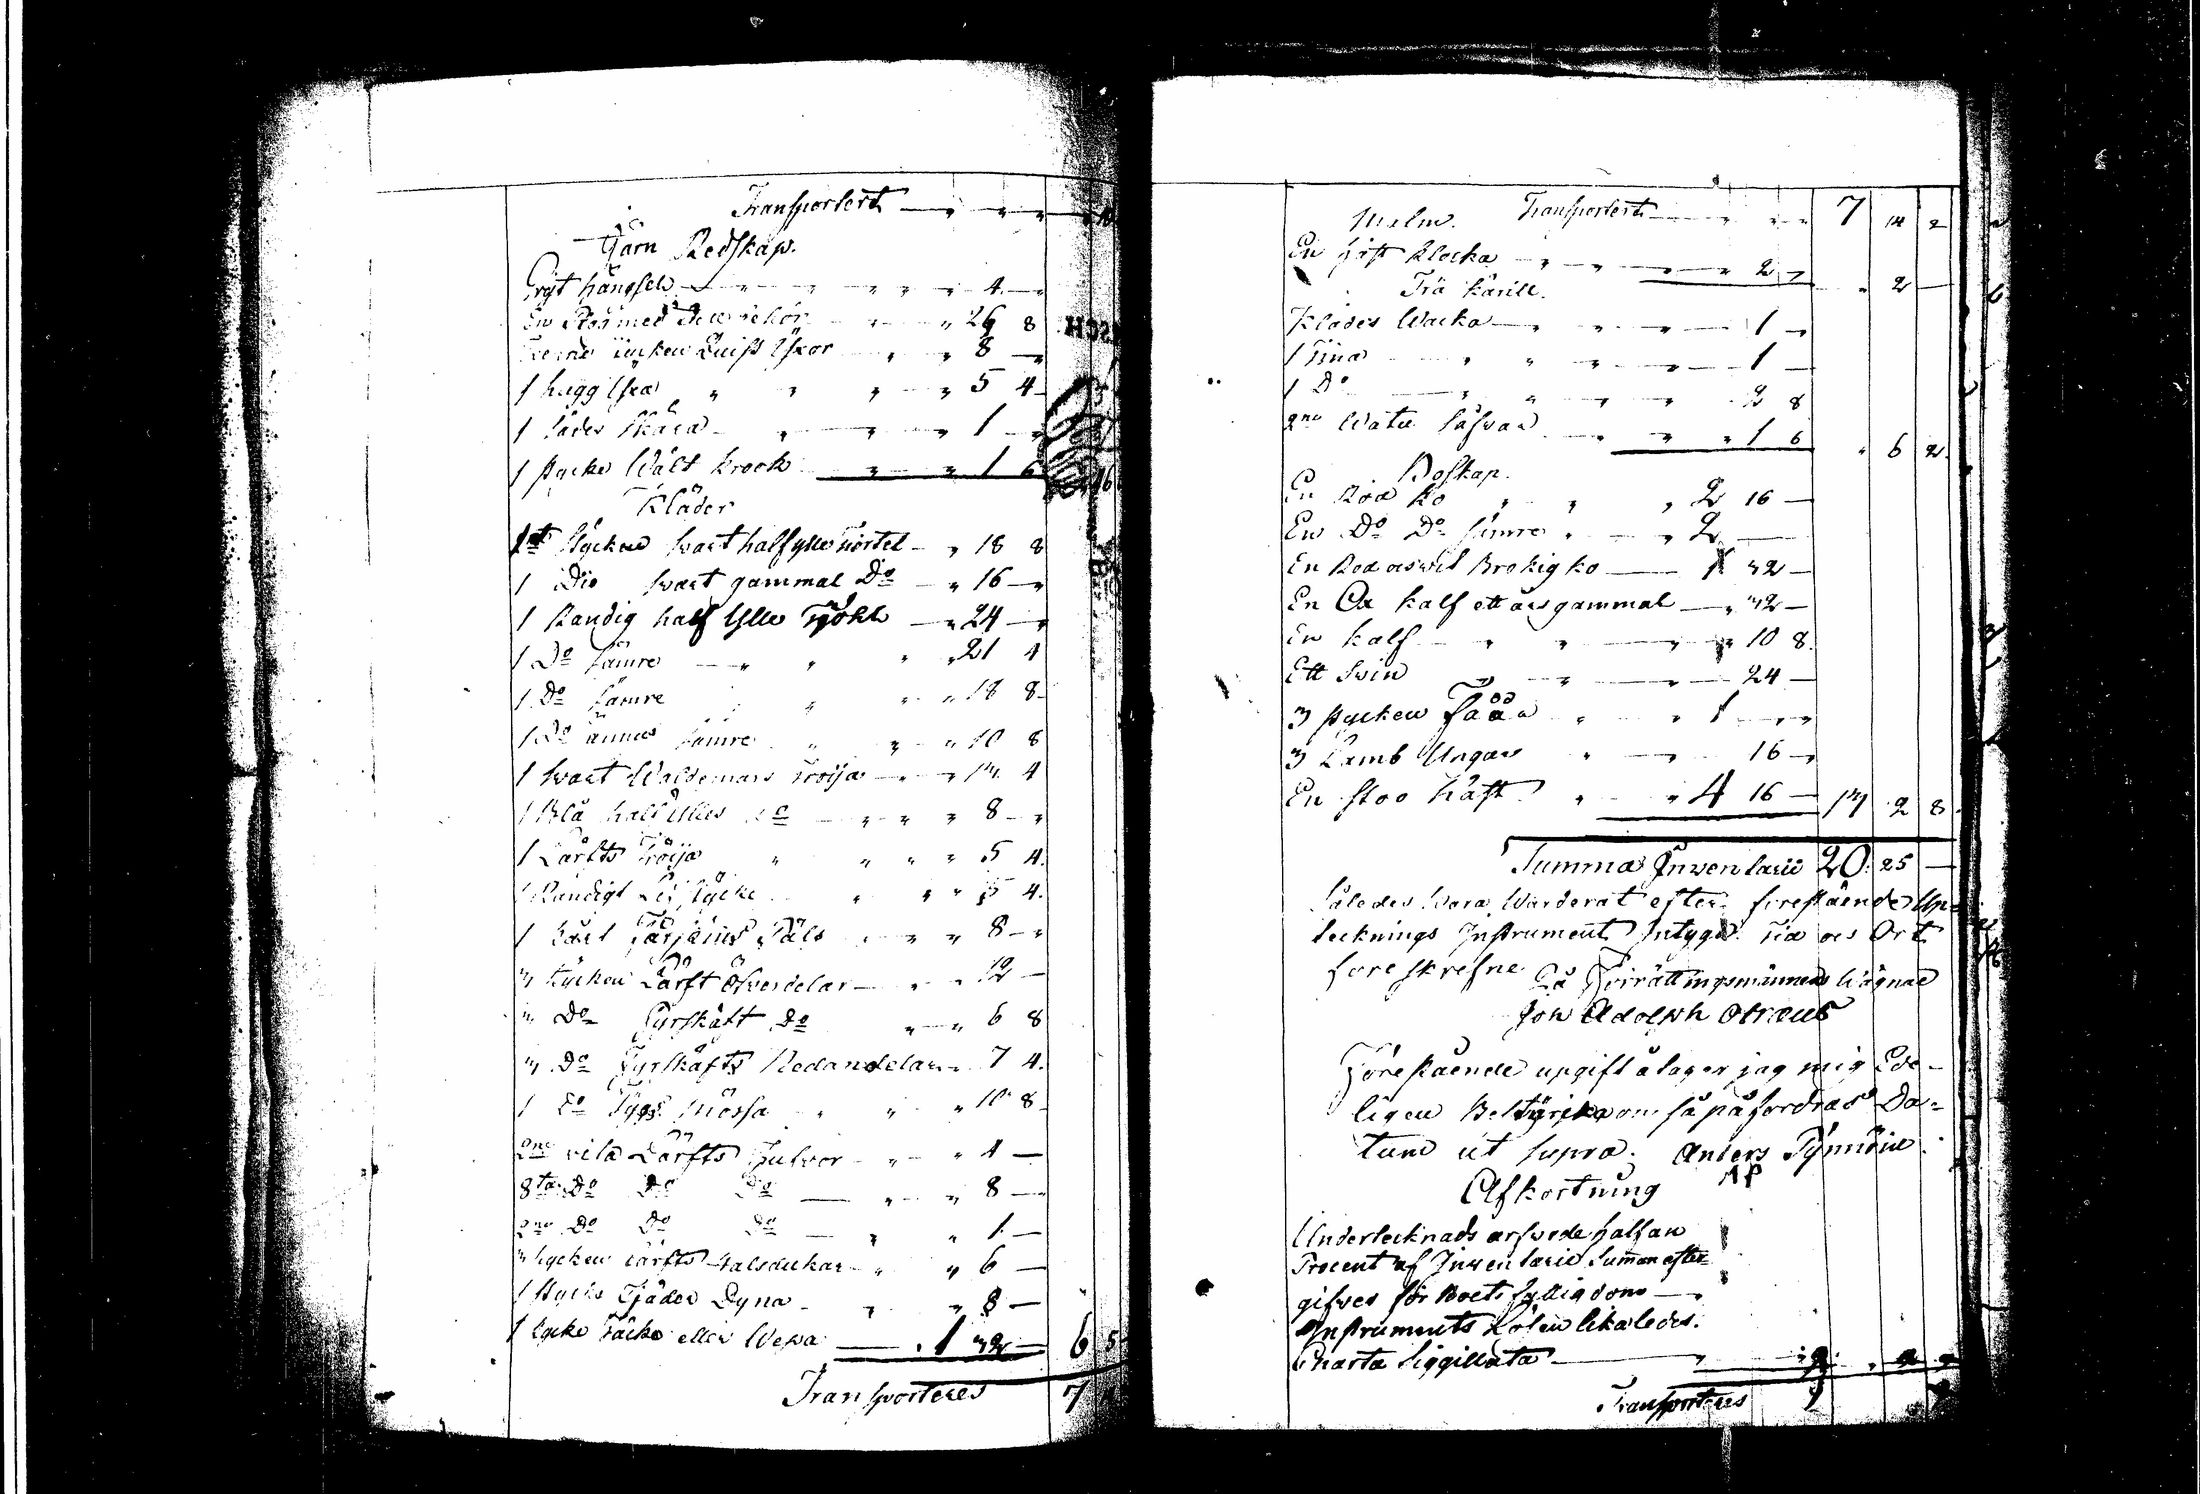 Transportert
Järn Redskap.
Gryt hängsel 4
26 8
stycken Yxor 8
1 hugg Yxa 5 4
1 Sädes skära 1
1 stycke Wält krook 1 6
Kläder
1 stycken swart halfylle Kiortel 18 8
1 Dio swart gammal Do 16
1 Randig half Ylle 24
1 Do sämre 21 4
1 Do sämre 18 8
1 Do ännu sämre 10 8
1 swart Waldemars Tröija 4
1 Blå half Ylles Do 8
1 Lärfts Tröija 5 4
1 Randigt Lifstycke 5 4
1 Päls 8
3 stycken Lärft Öfverdelar 12
3 Do Fyrskäft Do 6 8
3 Do Fyrskäfts Nedandelar 7 4
1 Do Tygs Mössa 10 8
2ne Lärfts Hufvor 4
8ta Do Do Do 8
2ne Do Do Do 1
3 stycken Lärfts Halsdukar 6
1 stycke Fjäder Dyna 8
1 stycke Täcke eller Wepa 1 32 6 5
Transporteres 7
Malm. Transportert 7 14 2
En häst klocka 2 2
Trä kärill.
Klädes Wacka 1
1 Tina 1
1 Do 2 8
2ne Watu Såfwar 1 6 6 2
Boskap.
En Röd ko 2 16
En Do Do sämre 2
En Röd och wit Brokig ko 1 32
En Ox kalf ett års gammal 32
En kalf 10 8
Ett Swin 24
3 stycken Fåår 1
3 Lamb Ungar 16
En stoo häst 4 16 13 2 8
Summa Inventarie 20 25
Således Wara Wärderat efter förestående Up-
tecknings Instrument Intygas Tid och Ort
föreskrefne På Förrättningsmännens Wägnar
Joh Adolph
Förestående upgift åtager jag mig Ede-
ligen Bestyrka om så påfordras Da-
tum ut supra. Anders
Afkortning
Undertecknads arfwode half an
Procent af Inventarie Summan efter-
gifves för Boets fattigdom
Instruments Lösen likaledes.
Charta Siggillata 2 2
Transporteres